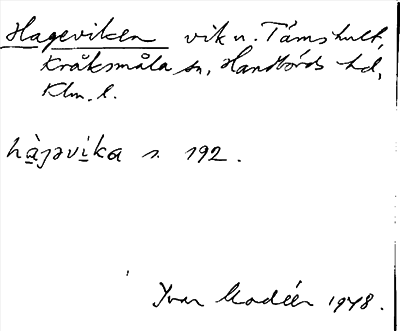 Hageviken vik n. Tämshult,
Kråksmåla sn, Handbörds hd,
Klm. l.
hàjəvika s. 192.
Ivar Modéer 1948.